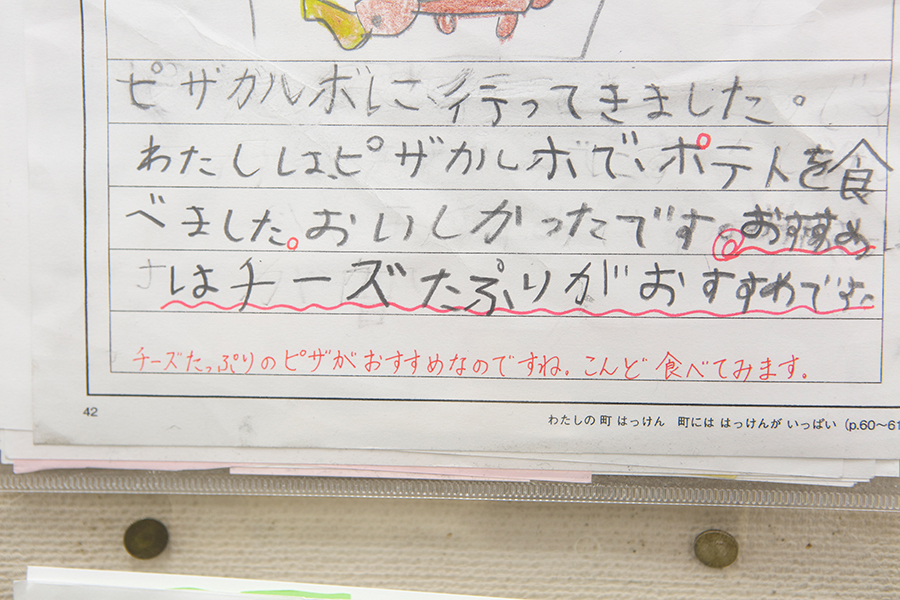 ピザカルボに行ってきました。
わたしは、ピザカルボで、ポテトを食
べました。おいしかったです。おすすめ
はチーズたぷりがおすすめです。
チーズたっぷりのピザがおすすめなのですね。こんど食べてみます。
42
わたしの町 はっけん 町には はっけんが いっぱい (p.60〜61